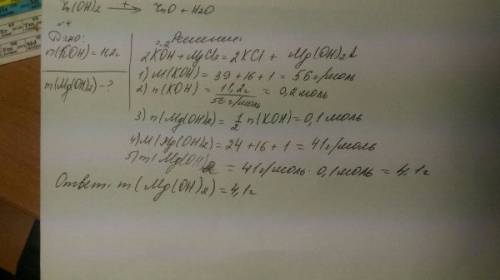 Zn(OH)2 →t ZnO + H2O
Дано:
Решение:
m(KOH) = 11,2г
2KOH + MgCl2 = 2KCl + Mg(OH)2↓
m(Mg(OH)2) - ?
1) M(KOH) = 39 + 16 + 1 = 56 г/моль
2) n(KOH) = 11,2г / 56 г/моль = 0,2 моль
3) n(Mg(OH)2) = 1/2 n(KOH) = 0,1 моль
4) M(Mg(OH)2) = 24 + 16 + 1 = 41 г/моль
5) m(Mg(OH)2 = 41 г/моль · 0,1 моль = 4,1г
Ответ: m(Mg(OH)2) = 4,1г